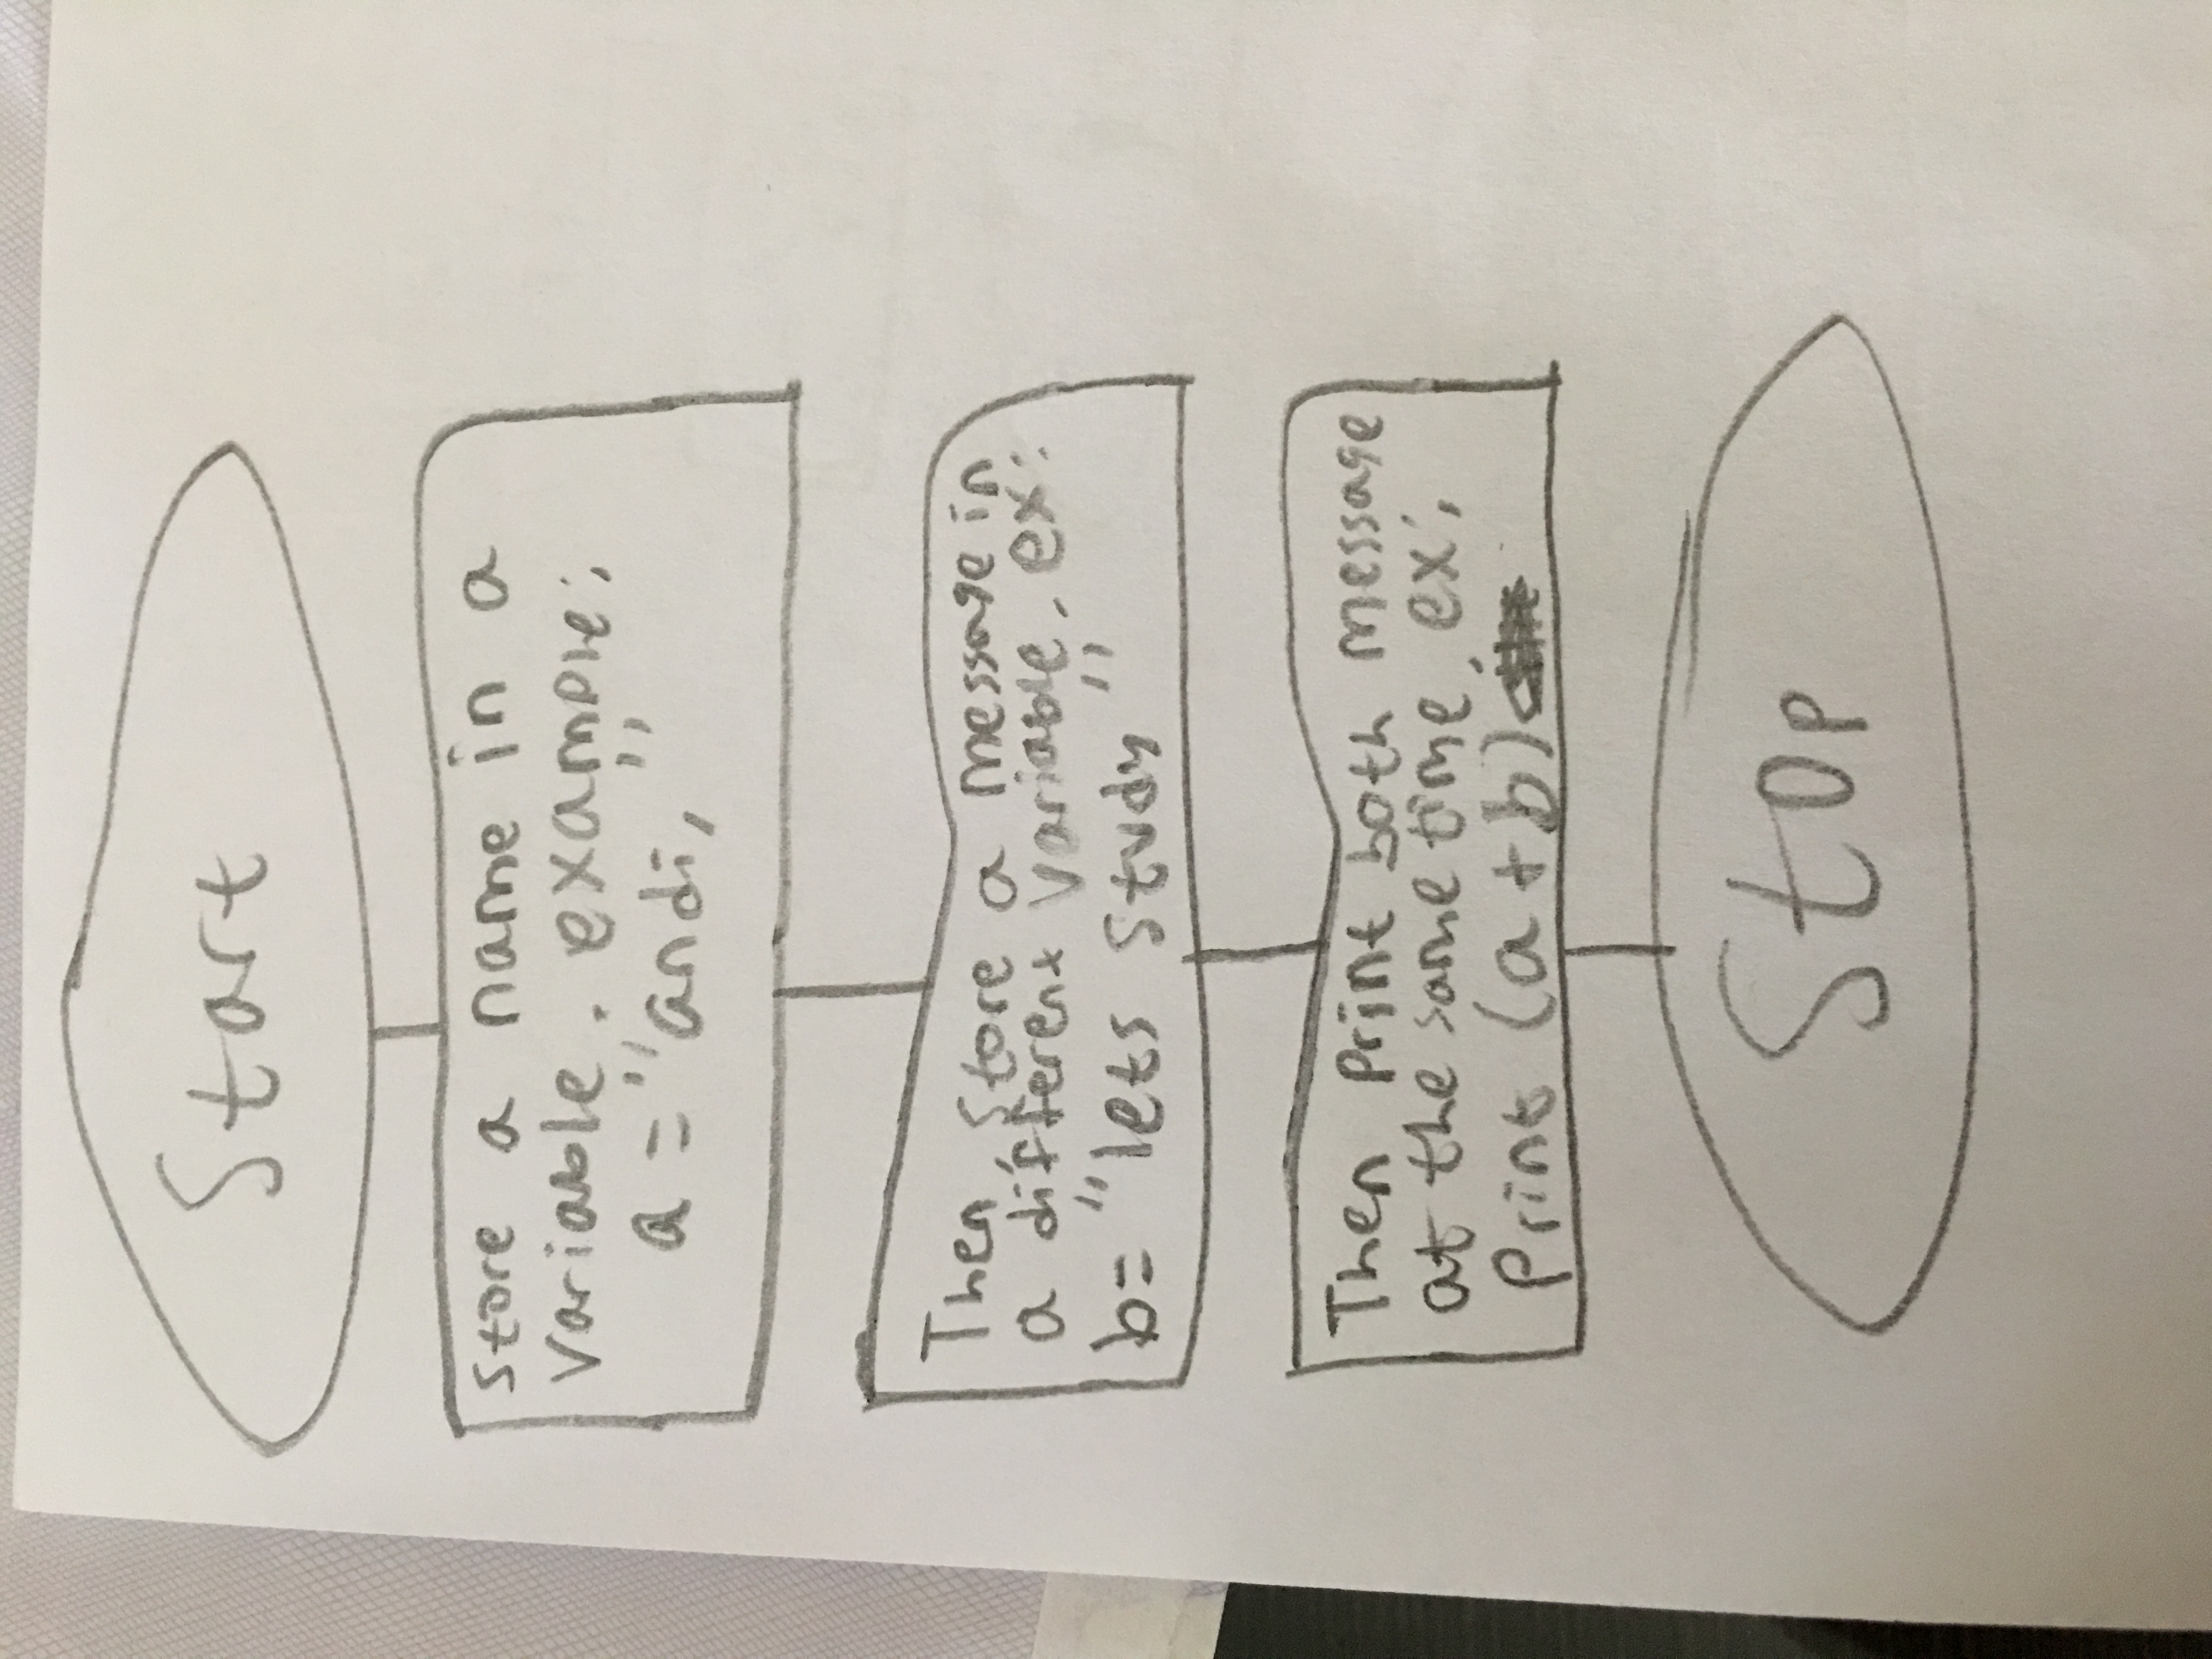 Start
store a name in a
variable. example:
a = "andi, "
Then, store a message in
a different variable. ex:
b= "lets study "
Then print both message
at the same time. ex:
Print (a+b)
Stop